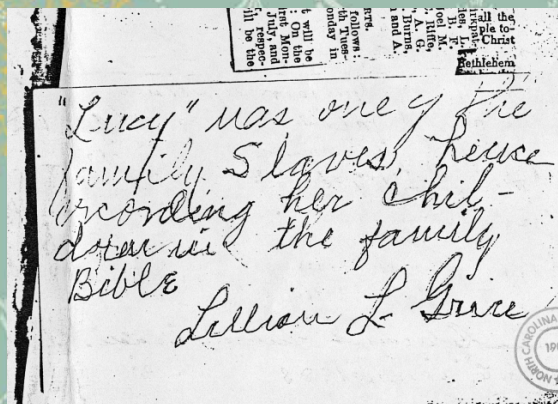 t will be
On the
rst Mon-
July, and
, respec-
ll be the
RTS.
follows:
th Tues-
onday in
Burns,
n and A.
all the
ple to
Christ
Bethlehem
Joel M.
Rifle,
A. G.
"Lucy" was one of the
family Slaves, hence
recording her chil-
dren in the family
Bible
Lillian L. Grice
NORTH CAROLINA